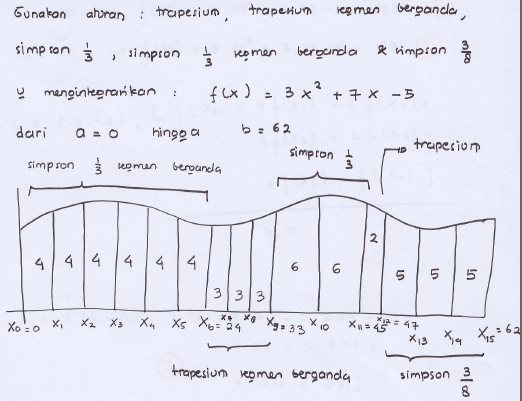 Gunakan aturan : trapesium, trapesium segmen berganda,
simpson 1/3, simpson 1/3 segmen berganda & simpson 3/8
u mengintegralkan : f(x) = 3x² + 7x - 5
dari a = 0 hingga b = 62
simpson 1/3 segmen berganda
simpson 1/3
trapesium
4 4 4 4 4 4 3 3 3 6 6 2 5 5 5
x₀=0 x₁ x₂ x₃ x₄ x₅ x₆=24 x₇ x₈ x₉=33 x₁₀ x₁₁=45 x₁₂=47 x₁₃ x₁₄ x₁₅=62
trapesium segmen berganda
simpson 3/8